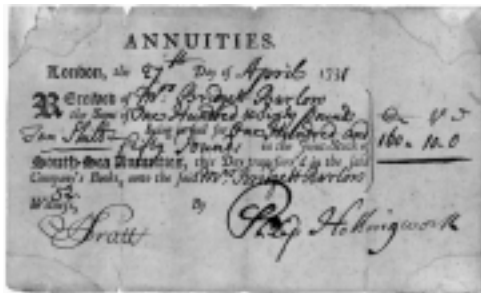 ANNUITIES.
London, the 27th Day of April 1738
REceived of Mrs Bridgett Barlow
the Sum of One Hundred & Sixty Pounds
Ten Shill being in full for One Hundred and
Fifty Pounds in the Joint-Stock of
South-Sea Annuities, this Day transferr'd in the said
Company's Books, unto the said Mrs Bridgett Barlow
160 10 0
Witness, By
Pratt Philip Hollingworth